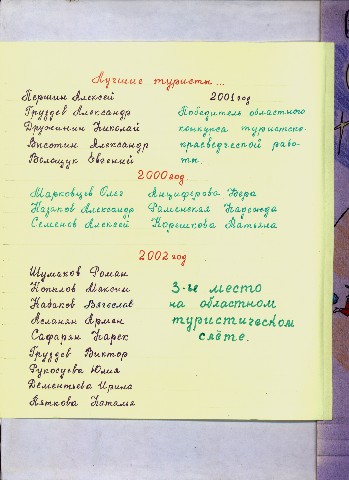 Лучшие туристы...
Першин Алексей
Груздев Александр
Дружинин Николай
Высотин Александр
Волащук Евгений
2001 год
Победитель областного
конкурса туристско-
краеведческой рабо-
ты.
2000 год
Марковцев Олег Анциферова Вера
Казаков Александр Раменская Надежда
Семенов Алексей Корешкова Татьяна
2002 год
Шумаков Роман
Копылов Максим
Казаков Вячеслав
Асланян Армен
Сафарян Нарек
Груздев Виктор
Рукосуева Юлия
Дементьева Ирина
Пяткова Наталья
3-е место
на областном
туристическом
слёте.